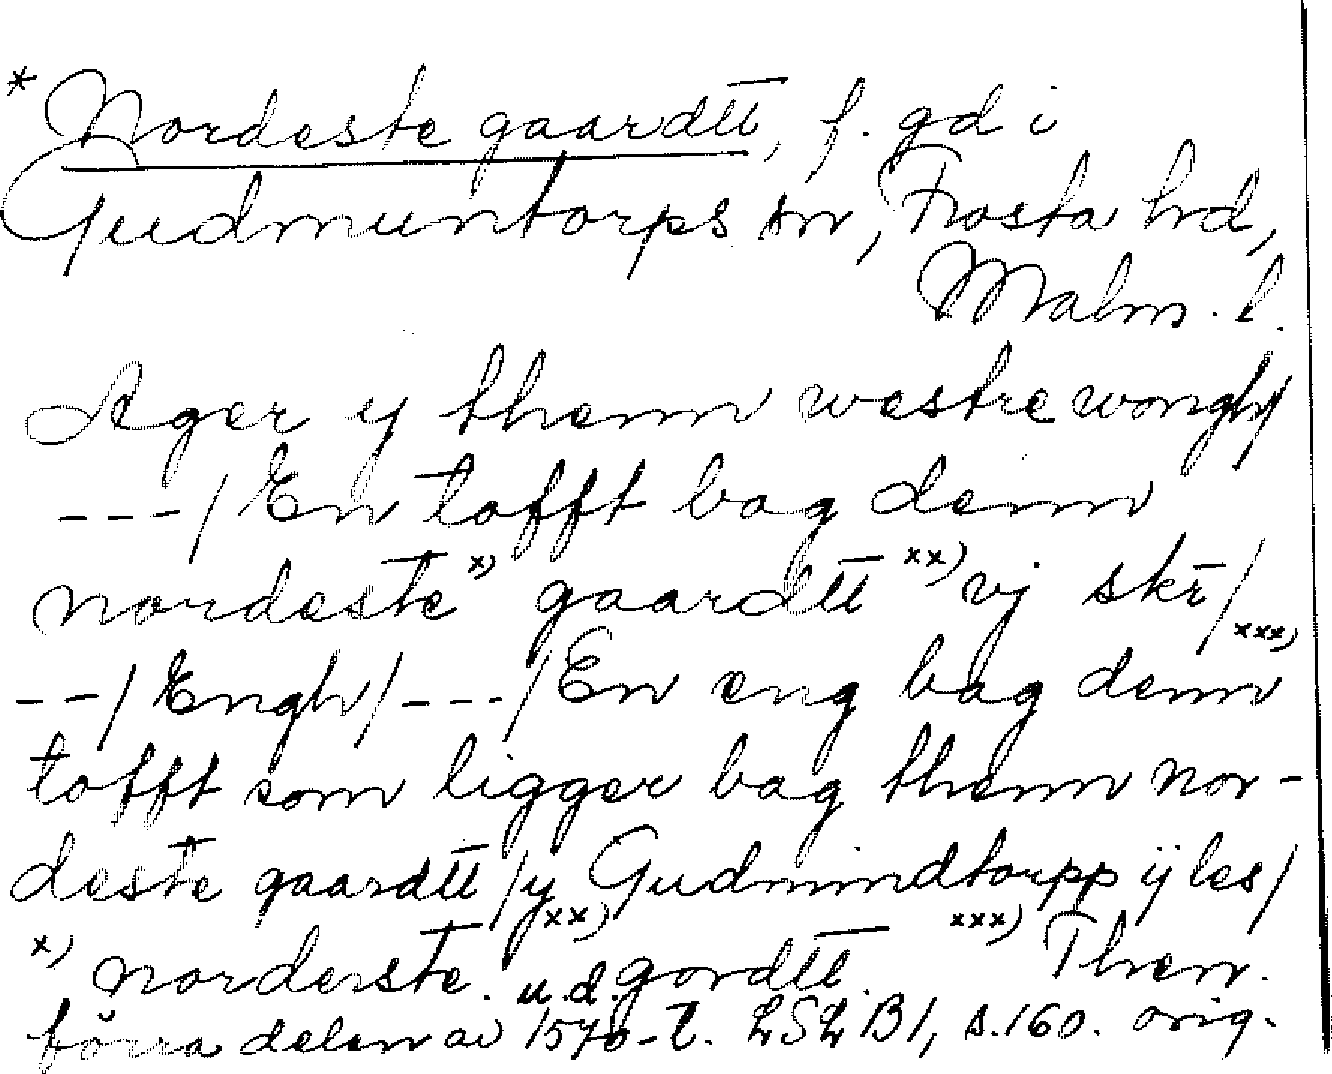 * Nordeste gaardtt, f. gd i
Gudmuntorps sn, Frosta hd,
Malm. l.
Ager y thenn westre wongh/
---/ En tofft bag denn
nordeste x) gaardtt xx) vj skr̄/
--/ Engh/---/En eng bag denn xxx)
tofft som ligger bag thenn nor-
deste gaardtt/y Gudmindtorpp ij les/
x) norderste. xx) gordtt. xxx) Then.
u.d. förra delen av 1570-t. LSLB1, s.160. orig.